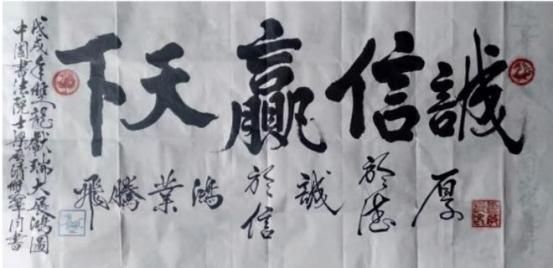 誠信贏天下
厚於德
誠於信
鴻業騰飛
戊戌年龍獻瑞大展鴻圖
中国書法院士書